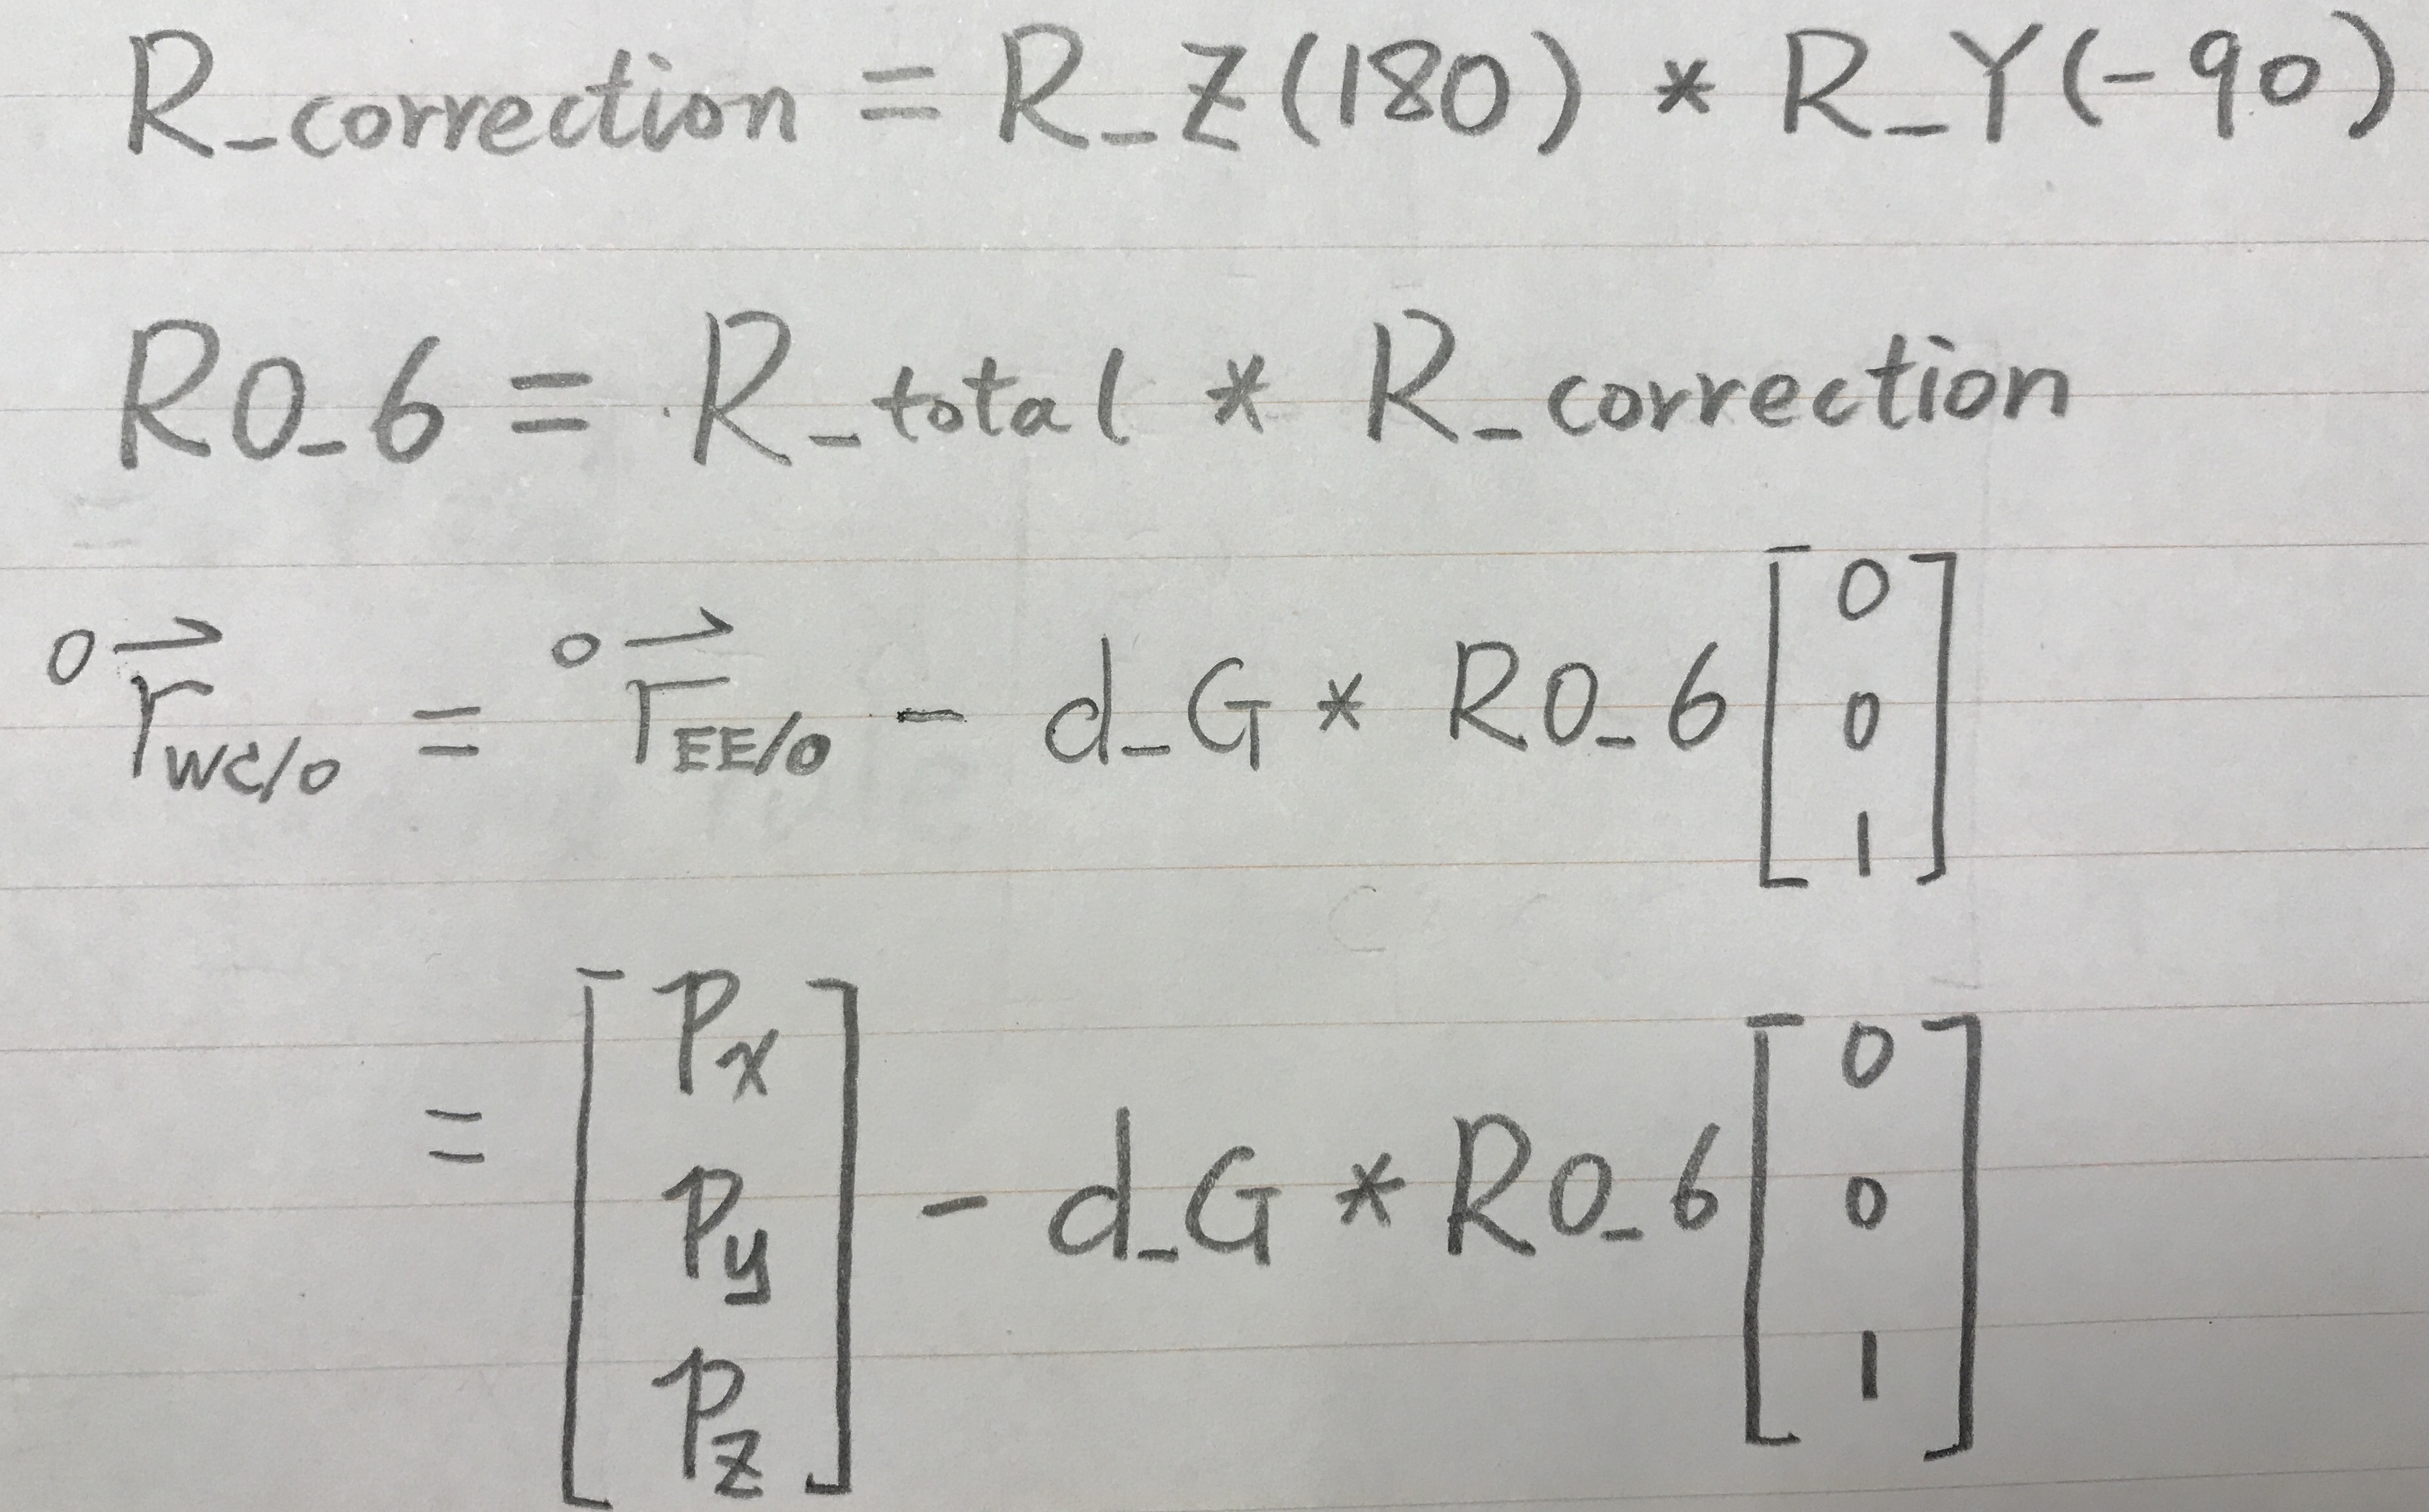 R_correction = R_Z(180) * R_Y(-90)
R0_6 = R_total * R_correction
⁰r⃗_WC/0 = ⁰r⃗_EE/0 - d_G * R0_6 [0 0 1]
= [Px Py Pz] - d_G * R0_6 [0 0 1]